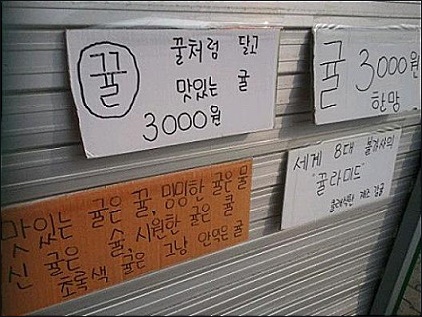 뀰
꿀처럼 달고
맛있는 귤
3000원
귤 3000원
한망
맛있는 귤은 꿀, 밍밍한 귤은 물
신 귤은 술, 시원한 귤은 쿨
초록색 귤은 그냥 안익은 귤
세계 8대 불가사의
"뀰라미드"
제주 감귤